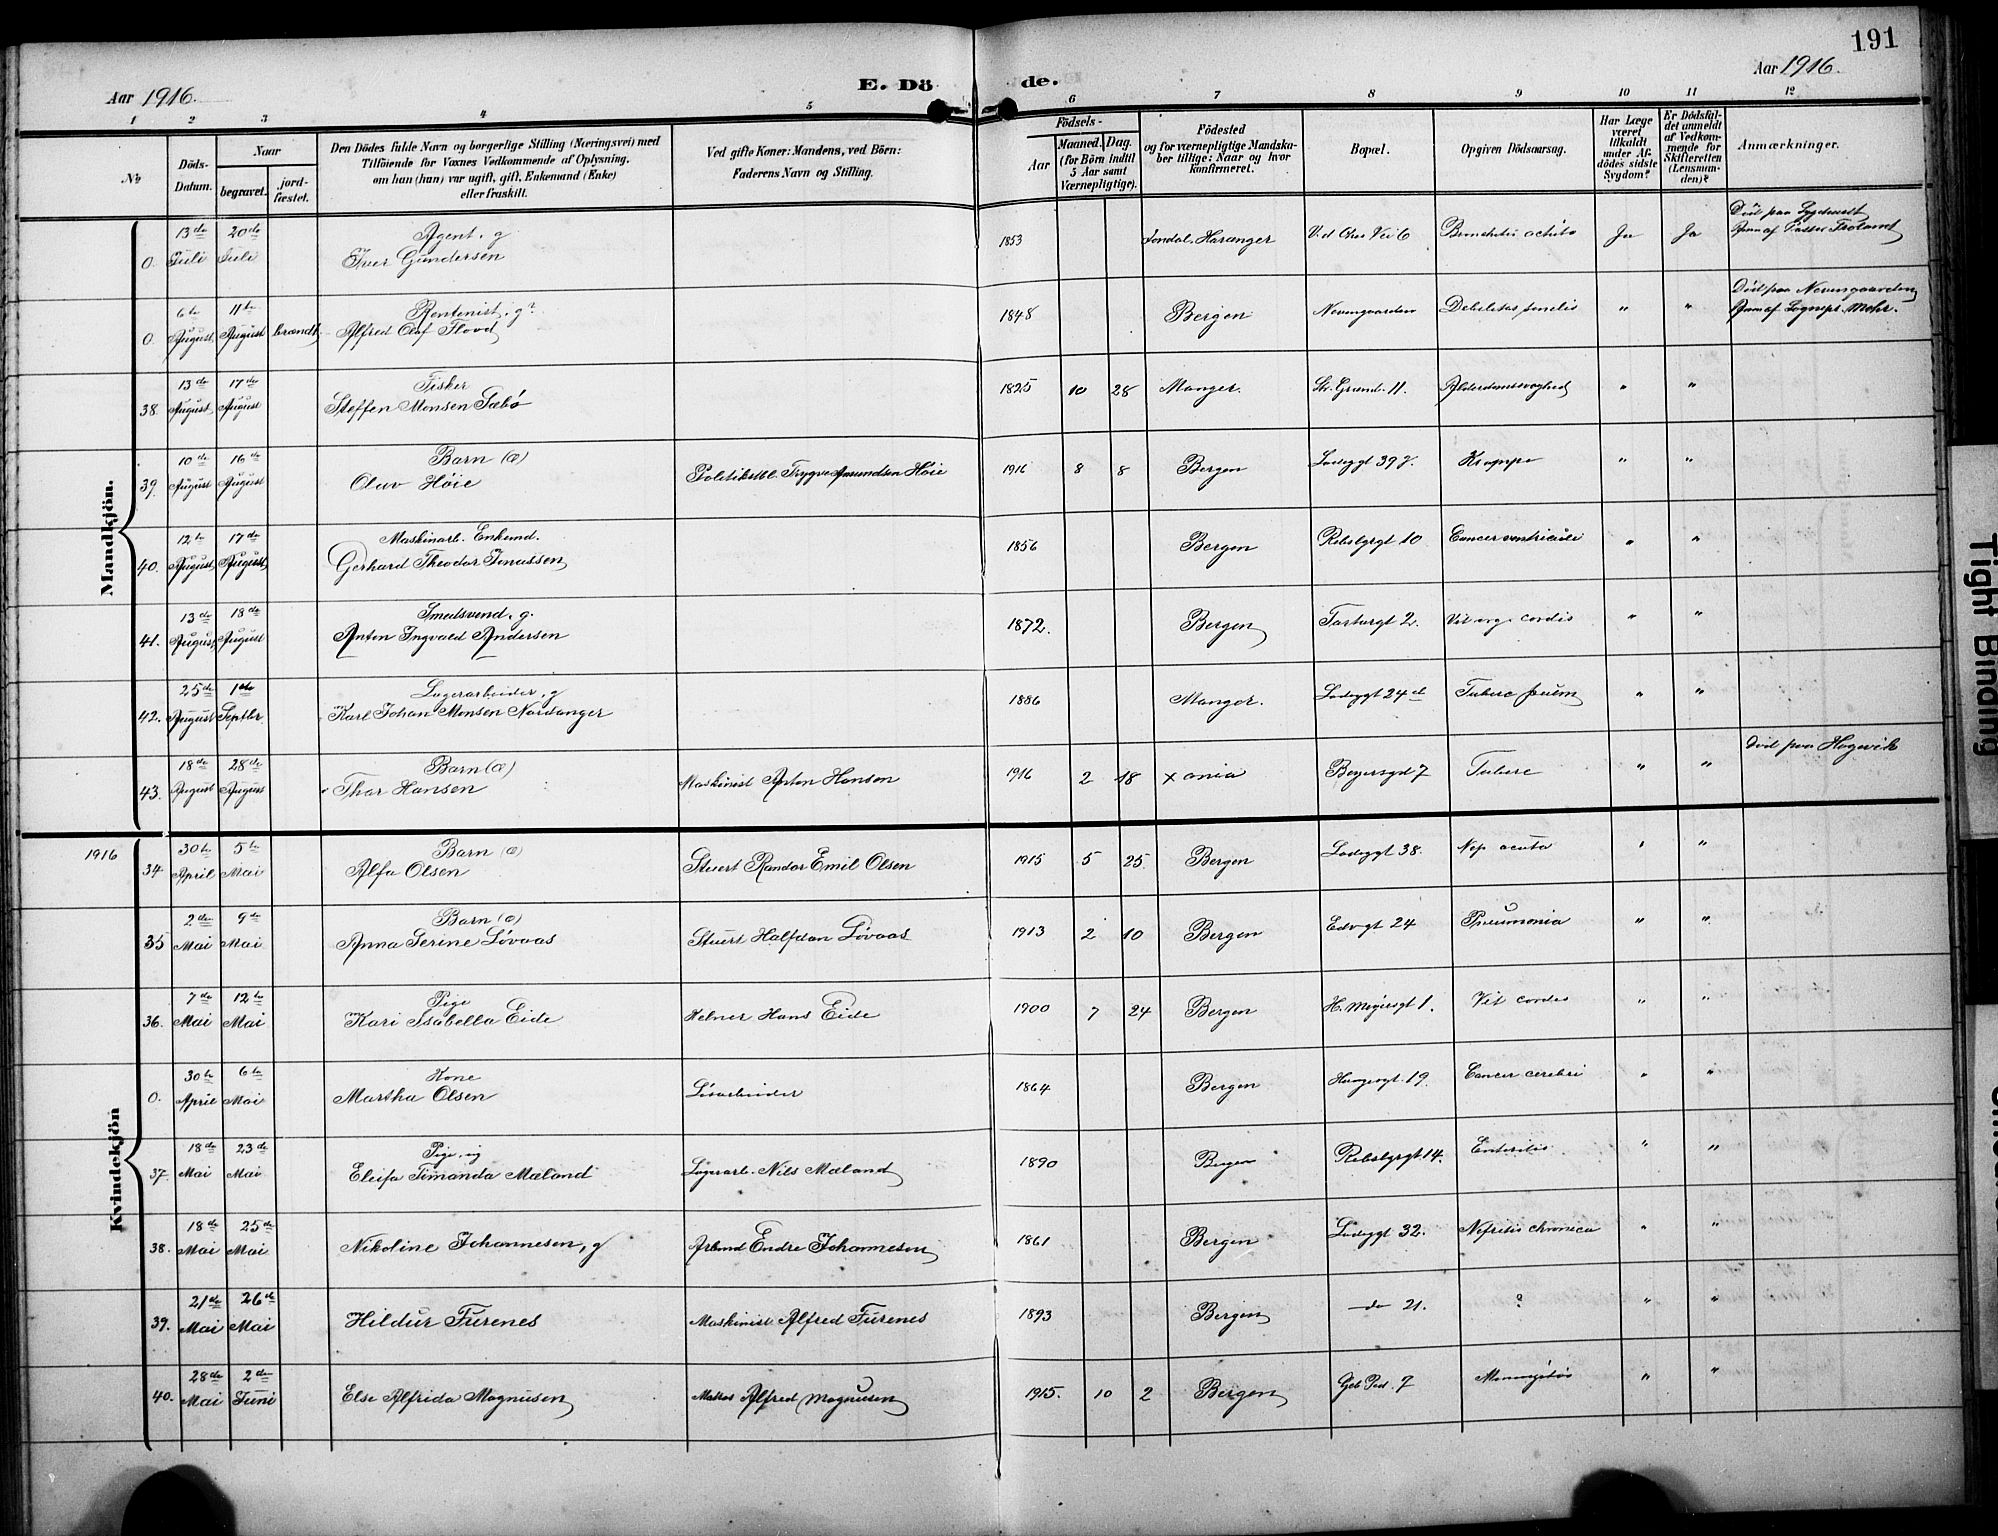 191
Aar 1916.
E. Dö de.
Aar 1916.
1 2 3 4 5 6 7 8 9 10 11 12
№
Döds-Datum.
Naar
begravet.
jord-fæstet.
Den Dödes fulde Navn og borgerlige Stilling (Næringsvei) med
Tilföiende for Voxnes Vedkommende af Oplysning,
om han (hun) var ugift, gift, Enkemand (Enke)
eller fraskilt.
Ved gifte Koner: Mandens, ved Börn:
Faderens Navn og Stilling.
Födsels-
Aar
Maaned. Dag.
(for Börn indtil
5 Aar samt
Værnepligtige).
Födested
og for værnepligtige Mandska-
ber tillige: Naar og hvor
konfirmeret.
Bopæl.
Opgiven Dödsaarsag.
Har Læge
været
tilkaldt
under Af-
dödes sidste
Sygdom?
Er Dödsfal-
det anmeldt
af Vedkom-
mende for
Skifteretten
(Lensman-
den)?
Anmærkninger.
Mandkjön.
0. 13de Juli 20de Juli Agent, g
Iver Gundersen 1853 Jondal, Haranger Ja Ja
0. 6te August 11te August brændt Rentenist, g?
Alfred Olaf Flood 1848 Bergen Nevengaarden Debilitas senilis " " Död paa Nevengaarden
38. 13de August 17de August Fisker
Steffen Monsen Sæbö 1825 10 28 Manger. Str. Grund. 11. Alderdomssvaghed " "
39. 10de August 16de August Barn (Æ)
Olav Höie Trygve Amundsen Höie 1916 8 8 Bergen Ladeggt 39 Krampe " "
40. 12te August 17de August Maskinarb. Enkemd.
Gerhard Theodor Jonassen 1856 Bergen Rebslgrgt 10 Cancer ventriculi " "
41. 13de August 18de August Smedsvend, g.
Anton Ingvald Andersen 1872. Bergen 2. Vit org cordis " "
42. 25de August 1ste Septbr Lagerarbeider, g
Karl Johan Monsen Nordanger 1886 Manger. Ladeggt 24 " "
43. 18de August 28de August Barn (Æ)
Thor Hansen Maskinist Anton Hansen 1916 2 18 Xania 7 Tuberc " " Död paa Hagevik
1916
Kvindekjön
34. 30te April 5te Mai Barn (Æ)
Alfa Olsen Stuert Randor Emil Olsen 1915 5 25 Bergen Ladeggt 38. Nep acuta " "
35 2den Mai 9de Mai Barn (Æ)
Anna Serine Lövaas Stuert Halfdan Lövaas 1913 2 10 Bergen Edvgt 24 Pneumonia " "
36. 7de Mai 12te Mai Pige
Kari Isabella Eide Kelner Hans Eide 1900 7 24 Bergen H. Meyersgt 1. Vit cordis " "
0. 30te April 6te Mai Kone
Martha Olsen Lösarbeider 1864 Bergen 19. Cancer cerebri " "
37. 18de Mai 23de Mai Pige, ug
Timanda Mæland Lagerarb. Nils Mæland 1890 Bergen Rebslgrgt 14. Enteritis " "
38. 18de Mai 25de Mai Nikoline Johannesen, g Arbmd Endre Johannesen 1861 Bergen Ladeggt 32. Nefritis chronica " "
39. 21de Mai 26de Mai Hildur Furenes Maskinist Alfred Furenes 1893 Bergen do 21. ? " "
40. 28de Mai 2den Juni Else Alfrida Magnusen Alfred Magnusen 1915. 10 2 Bergen 7 " "
Tight Binding